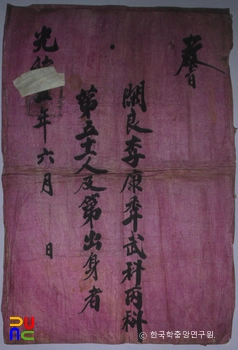 教旨
閑良李康 武科丙科
第五 人及第出身者
光緒 年六月 日
© 한국학중앙연구원